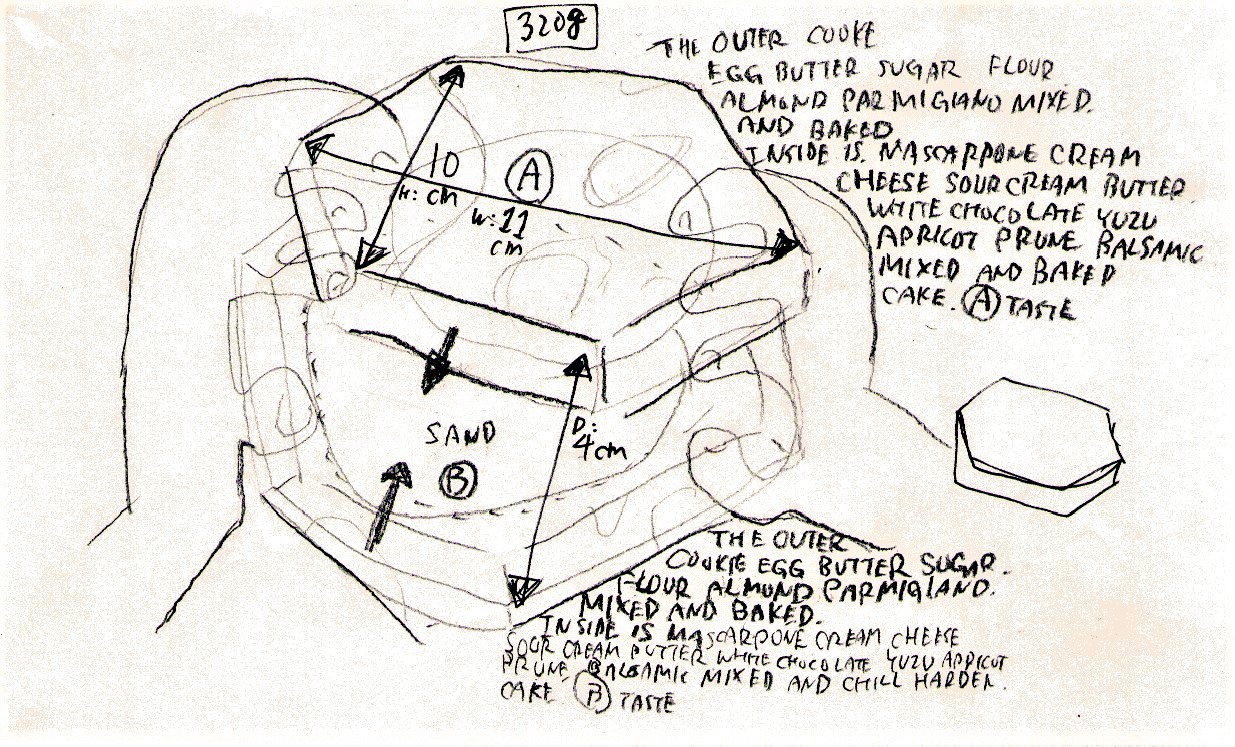 320g
THE OUTER COOKE
EGG BUTTER SUGAR FLOUR
ALMOND PARMIGIANO MIXED.
AND BAKED
INSIDE IS MASCARPONE CREAM
CHEESE SOUR CREAM BUTTER
WHITE CHOCOLATE YUZU
APRICOT PRUNE BALSAMIC
MIXED AND BAKED
CAKE. A TASTE
10
H: cm
A
W: 11
cm
SAND
B
D:
4cm
THE OUTER
COOKIE EGG BUTTER SUGAR.
FLOUR ALMOND PARMIGIANO.
MIXED AND BAKED.
INSIDE IS MASCARPONE CREAM CHEESE
SOUR CREAM BUTTER WHITE CHOCOLATE YUZU APRICOT
PRUNE BALSAMIC MIXED AND CHILL HARDEN.
CAKE. B TASTE